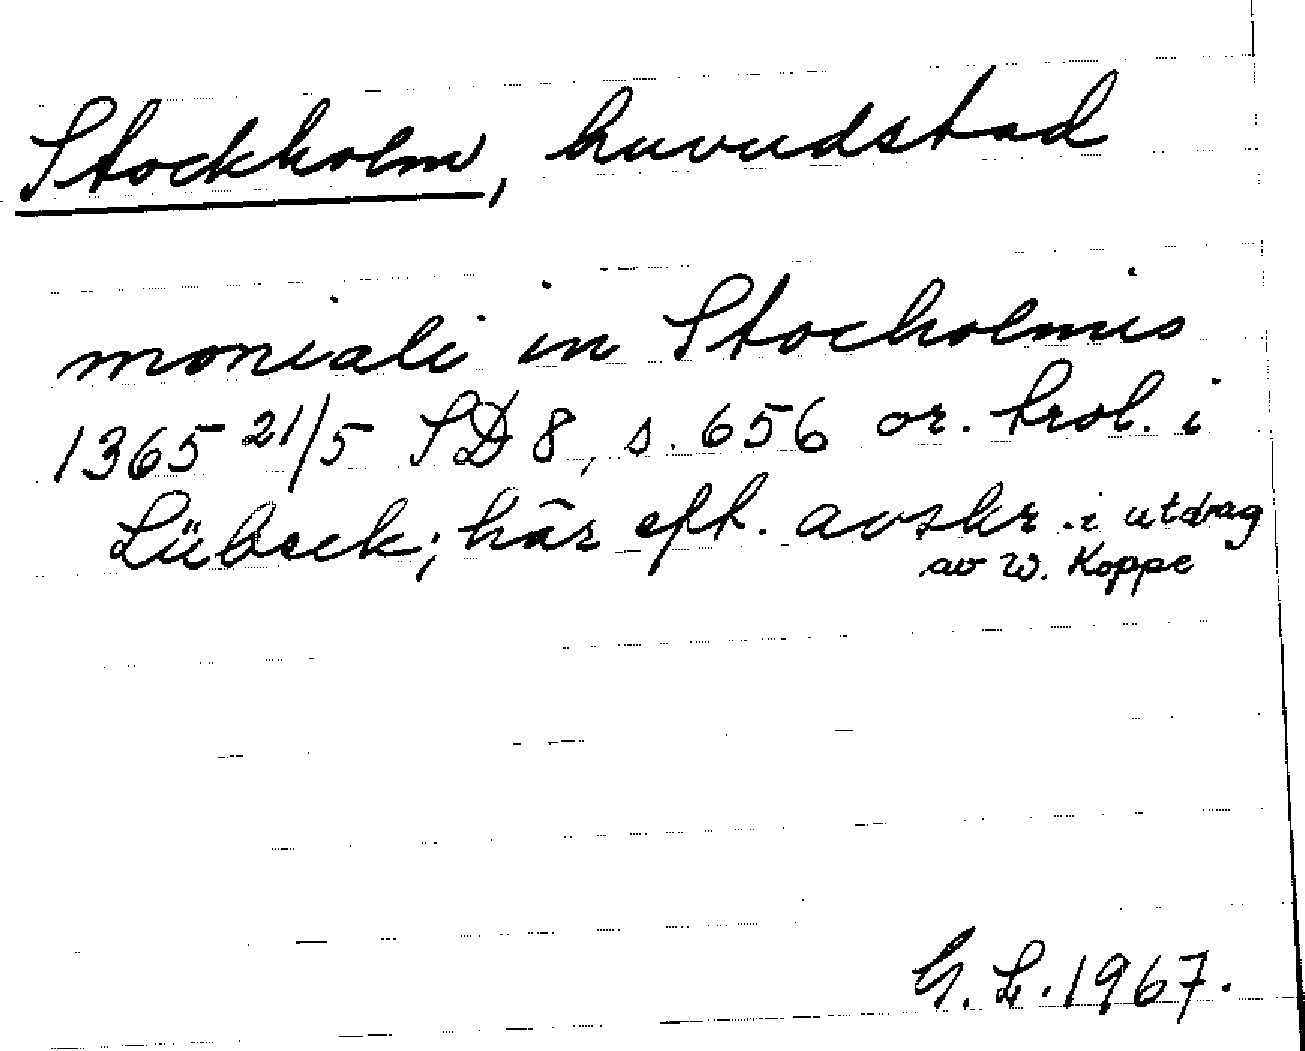 Stockholm, huvudstad
moniali in Stocholmis
1365 21/5 SD 8, s. 656 or. trol. i
Lübeck; här eft. avskr. i utdrag
av W. Koppe
G. L. 1967.